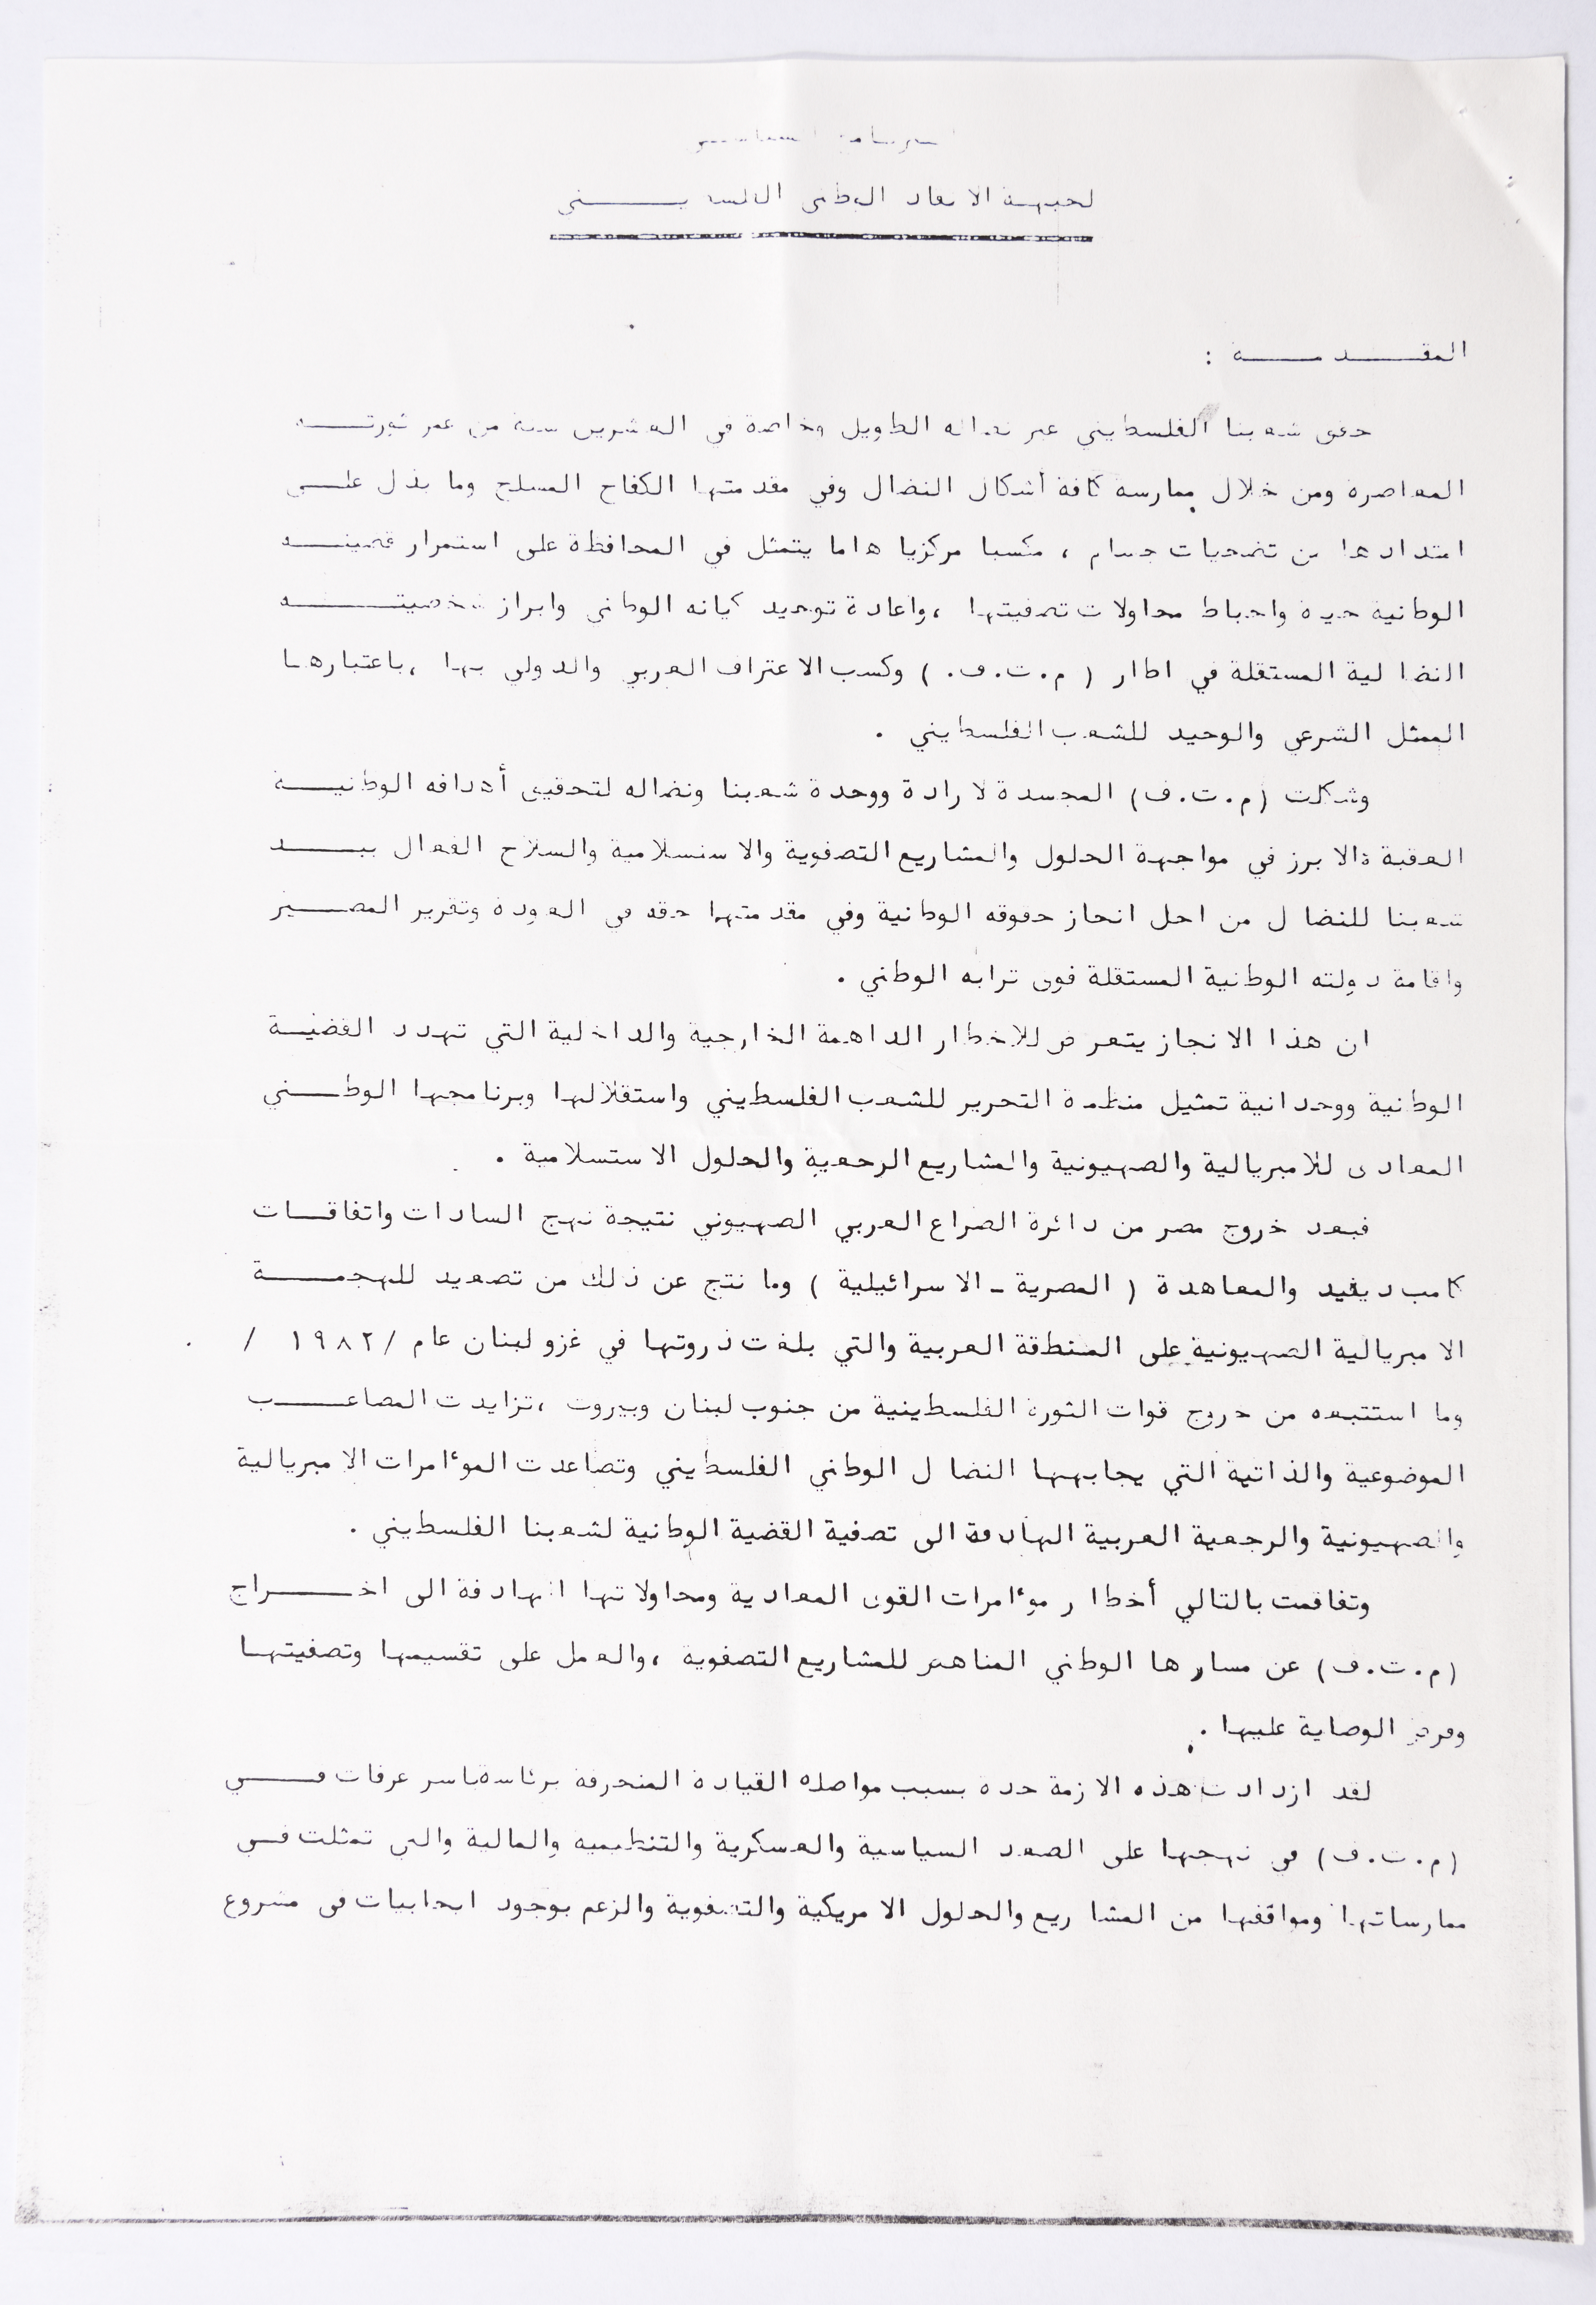 البرنامج السياسي
لجبهة الانقاذ الوطني الفلسطيني
المقدمة :
حقق شعبنا الفلسطيني عبر نضاله الطويل وخاصة في العشرين سنة من عمر ثورته
المعاصرة ومن خلال ممارسة كافة أشكال النضال وفي مقدمتها الكفاح المسلح وما بذل على
امتدادها من تضحيات جسام ، مكسبا مركزيا هاما يتمثل في المحافظة على استمرار قضيته
الوطنية حية واحباط محاولات تصفيتها ،واعادة توحيد كيانه الوطني وابراز شخصيته
النضالية المستقلة في اطار ( م.ت.ف. ) وكسب الاعتراف العربي والدولي بها ،باعتبارها
الممثل الشرعي والوحيد للشعب الفلسطيني .
وشكلت (م.ت.ف) المجسدة لارادة ووحدة شعبنا ونضاله لتحقيق أهدافه الوطنية
العقبة الابرز في مواجهة الحلول والمشاريع التصفوية والاستسلامية والسلاح الفعال بيد
شعبنا للنضال من اجل انجاز حقوقه الوطنية وفي مقدمتها حقه في العودة وتقرير المصير
واقامة دولته الوطنية المستقلة فوق ترابه الوطني .
ان هذا الانجاز يتعرض للاخطار الداهمة الخارجية والداخلية التي تهدد القضية
الوطنية ووحدانية تمثيل منظمة التحرير للشعب الفلسطيني واستقلالها وبرنامجها الوطني
المعادى للامبريالية والصهيونية والمشاريع الرجعية والحلول الاستسلامية .
فبعد خروج مصر من دائرة الصراع العربي الصهيوني نتيجة نهج السادات واتفاقات
كامب ديفيد والمعاهدة ( المصرية - الاسرائيلية ) وما نتج عن ذلك من تصعيد للهجمة
الامبريالية الصهيونية على المنطقة العربية والتي بلغت ذروتها في غزو لبنان عام /١٩٨٢ /
وما استتبعه من خروج قوات الثورة الفلسطينية من جنوب لبنان وبيروت ،تزايدت المصاعب
الموضوعية والذاتية التي يجابهها النضال الوطني الفلسطيني وتصاعدت المؤامرات الامبريالية
والصهيونية والرجعية العربية الهادفة الى تصفية القضية الوطنية لشعبنا الفلسطيني .
وتفاقمت بالتالي أخطار مؤامرات القوى المعادية ومحاولاتها الهادفة الى اخراج
(م.ت.ف) عن مسارها الوطني المناهض للمشاريع التصفوية ،والعمل على تقسيمها وتصفيتها
وفرض الوصاية عليها .
لقد ازدادت هذه الازمة حدة بسبب مواصلة القيادة المنحرفة برئاسة ياسر عرفات في
(م.ت.ف) في نهجها على الصعد السياسية والعسكرية والتنظيمية والمالية والتي تمثلت في
ممارساتها ومواقفها من المشاريع والحلول الامريكية والتصفوية والزعم بوجود ايجابيات في مشروع